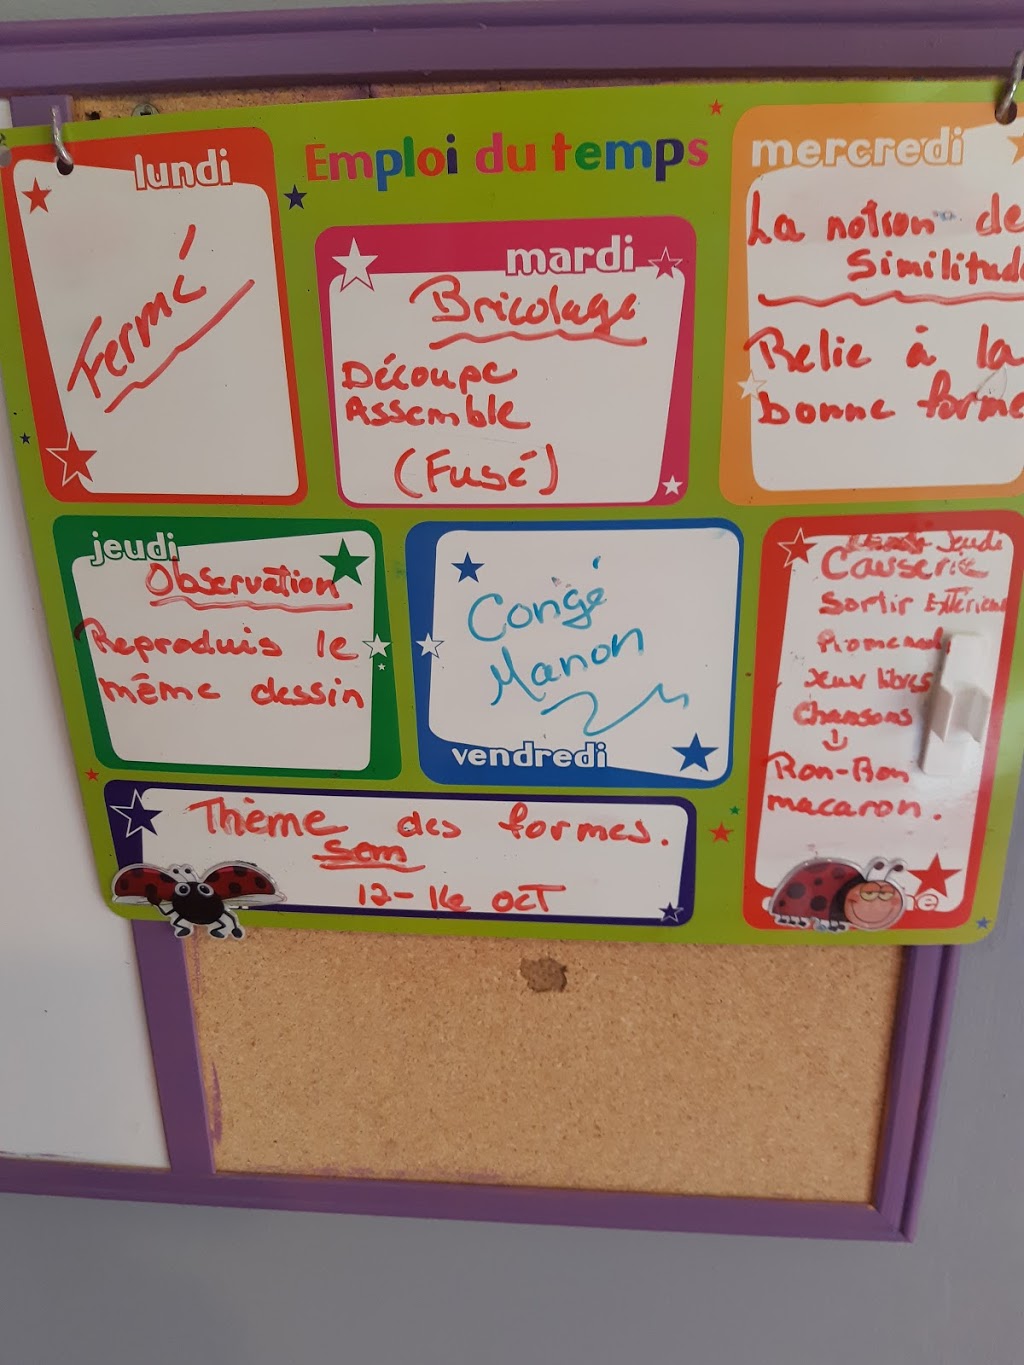 Emploi du temps
lundi
Fermé
mardi
Bricolage
Découpe
Assemble
(Fusé)
mercredi
La notion de
Similitud
Relie à la
bonne forme
jeudi
Observation
Reproduis le
même dessin
Congé
Manon
vendredi
Jeudi
Causerie
Sortir Extérieur
Promenad
Jeux libres
Chansons
Ron-Ron
macaron.
Thème des formes.
Sem
12-16 OCT